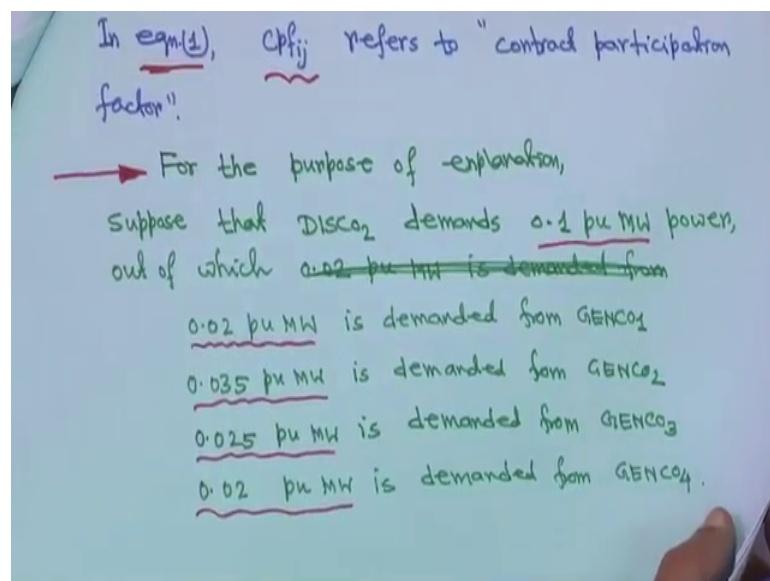 In eqn.(1), cpfij refers to "contract participation
factor".
For the purpose of explanation,
Suppose that DISCO2 demands 0.1 pu MW power,
out of which 0.02 pu MW is demanded from
0.02 pu MW is demanded from GENCO1
0.035 pu MW is demanded from GENCO2
0.025 pu MW is demanded from GENCO3
0.02 pu MW is demanded from GENCO4.